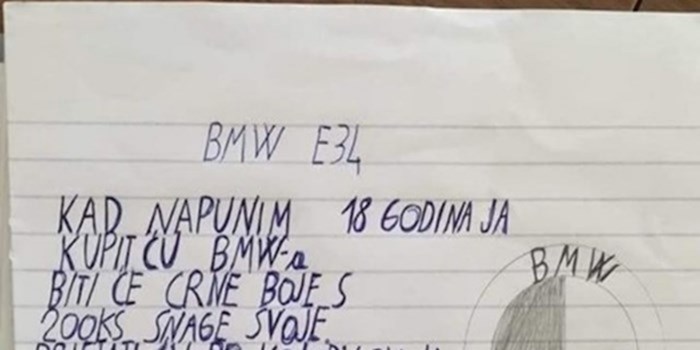 BMW E34
KAD NAPUNIM 18 GODINA JA
KUPIT ĆU BMW-a
BITI ĆE CRNE BOJE S
200KS SNAGE SVOJE.
BMW